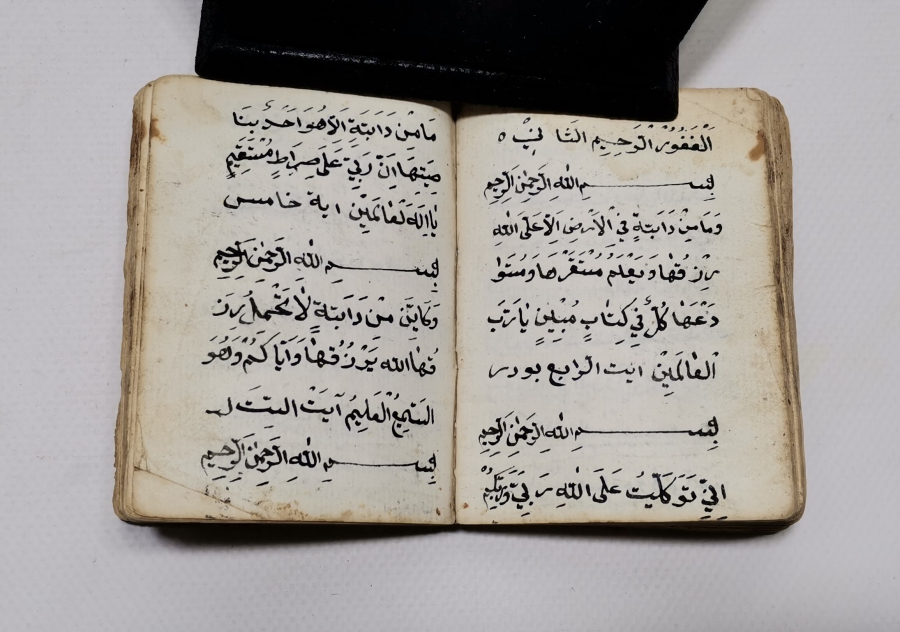 الْغَفُوْرُ الْرَحِيمِ الثَا لِيْ ٥
بِسْمِ اللهِ الرَّحْمٰنِ الرَّحِيْمِ
وَمَامِنْ دَابَتةٍ فِيْ الْاَرْضِ اِلَّاعَلَى اللهِ
رِزْقُهَا وَيَعْلَمُ مُسْتَقَرَّهَا وَمُسْتَوْ
دَعَهَا كُلٌّ فِيْ كِتَابٍ مُبِيْنٍ يَا رَبَّ
الْعَالَمِيْنْ ايت الرابع بودر
بِسْمِ اللهِ الرَّحْمٰنِ الرَّحِيْمِ
اِنِيّ تَوَكَلّتُ عَلَى اللّٰهِ رَبِيّ وَرَبِّكُمْ
مَامِنْ دَابَتةِ اِلَّا هُوَ اَخَذٌ بِنَا
صِيَتِهَا اِنَّ رَبِيّ عَلَى صِرَاطٍ مُسْتَقِيْمٍ
يَااِلَهَ لْعَالَمِيْن اية خامس
بِسْمِ اللهِ الرَّحْمٰنِ الرَّحِيْمِ
وَكَايَنّ مِنْ دَابَتةٍ لَا تَحْمِلُ رِزْ
قُهَا اللّٰه يَرْزُقُهَا وَاَيَاكُمْ وَهُوَ
السَّمِيْعُ الْعَلِيْمُ آيَتْ
بِسْمِ اللهِ الرَّحْمٰنِ الرَّحِيْمِ